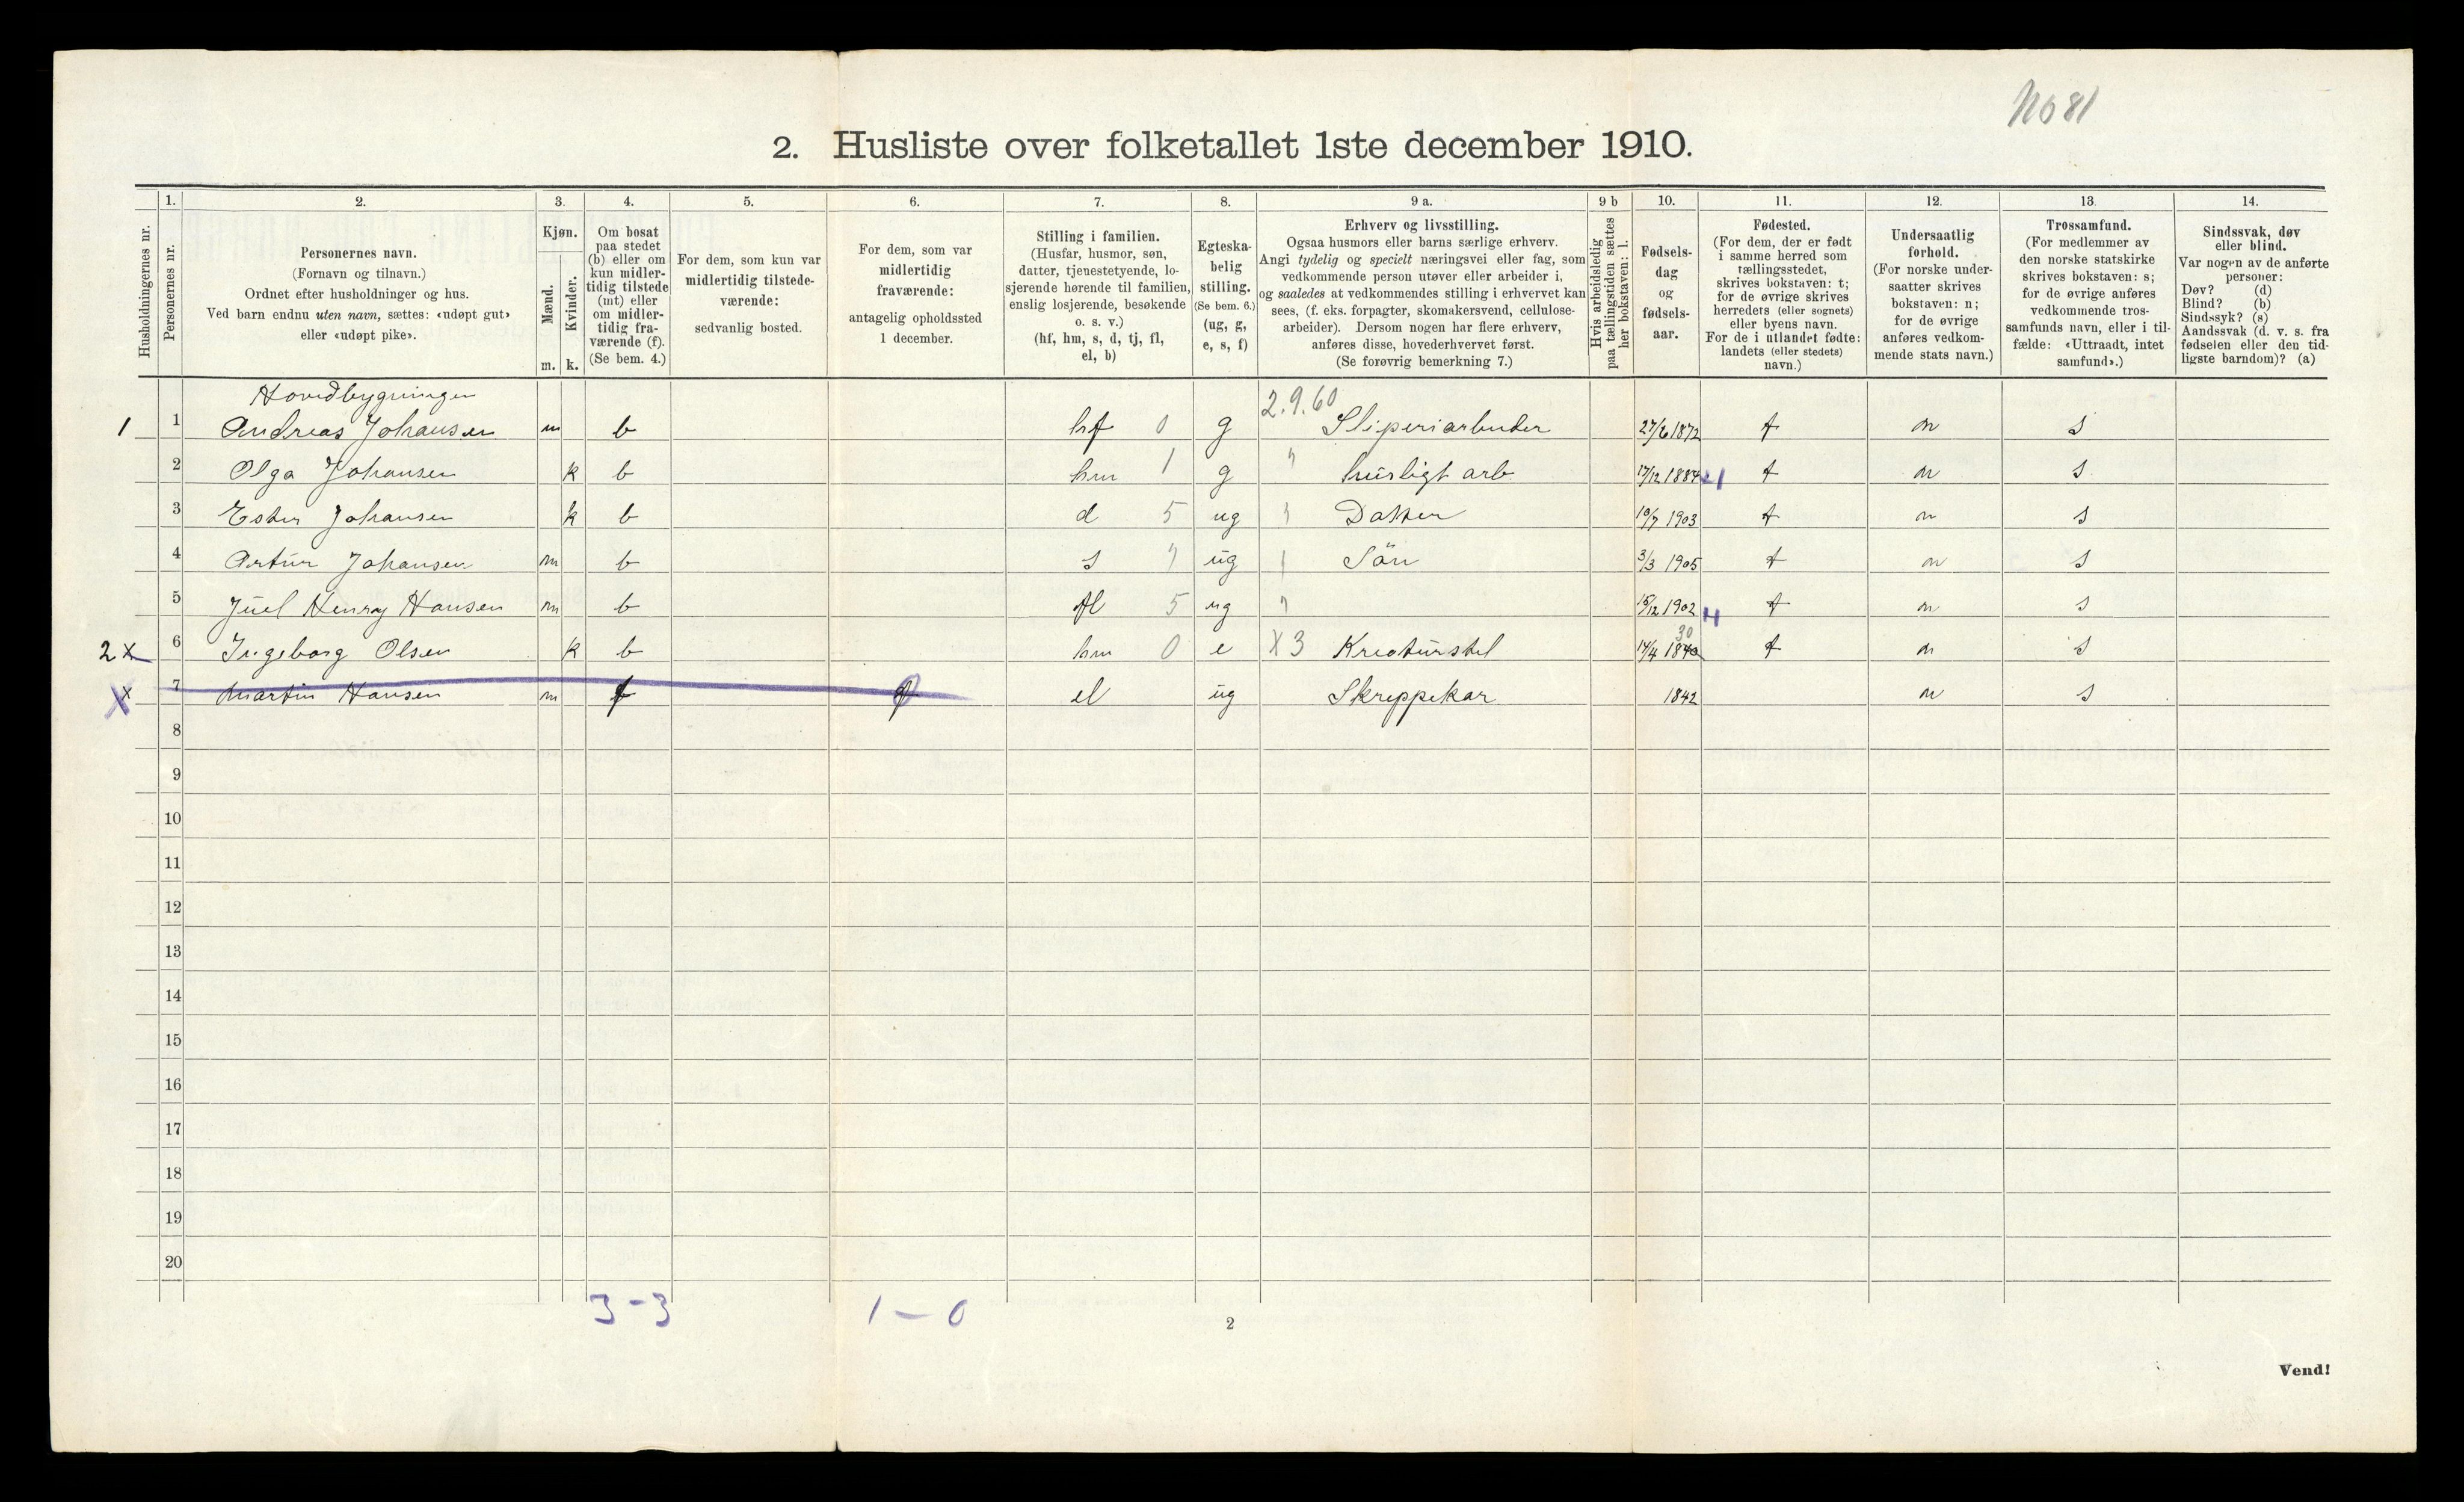 No 81
2. Husliste over folketallet 1ste december 1910.
Husholdningernes nr.
1.
Personernes nr.
2.
Personernes navn.
(Fornavn og tilnavn.)
Ordnet efter husholdninger og hus.
Ved barn endnu uten navn, sættes: «udøpt gut»
eller «udøpt pike».
3.
Kjøn.
Mænd.
Kvinder.
m. k.
4.
Om bosat
paa stedet
(b) eller om
kun midler-
tidig tilstede
(mt) eller
om midler-
tidig fra-
værende (f).
(Se bem. 4.)
5.
For dem, som kun var
midlertidig tilstede-
værende:
sedvanlig bosted.
6.
For dem, som var
midlertidig
fraværende:
antagelig opholdssted
1 december.
7.
Stilling i familien.
(Husfar, husmor, søn,
datter, tjenestetyende, lo-
sjerende hørende til familien,
enslig losjerende, besøkende
o. s. v.)
(hf, hm, s, d, tj, fl,
el, b)
8.
Egteska-
belig
stilling.
(Se bem. 6.)
(ug, g,
e, s, f)
9 a.
Erhverv og livsstilling.
Ogsaa husmors eller barns særlige erhverv.
Angi tydelig og specielt næringsvei eller fag, som
vedkommende person utøver eller arbeider i,
og saaledes at vedkommendes stilling i erhvervet kan
sees, (f. eks. forpagter, skomakersvend, cellulose-
arbeider). Dersom nogen har flere erhverv,
anføres disse, hovederhvervet først.
(Se forøvrig bemerkning 7.)
9 b
Hvis arbeidsledig
paa tællingstiden sættes
her bokstaven: l.
10.
Fødsels-
dag
og
fødsels-
aar.
11.
Fødested.
(For dem, der er født
i samme herred som
tællingsstedet,
skrives bokstaven: t;
for de øvrige skrives
herredets (eller sognets)
eller byens navn.
For de i utlandet fødte:
landets (eller stedets)
navn.)
12.
Undersaatlig
forhold.
(For norske under-
saatter skrives
bokstaven: n;
for de øvrige
anføres vedkom-
mende stats navn.)
13.
Trossamfund.
(For medlemmer av
den norske statskirke
skrives bokstaven: s;
for de øvrige anføres
vedkommende tros-
samfunds navn, eller i til-
fælde: «Uttraadt, intet
samfund».)
14.
Sindssvak, døv
eller blind.
Var nogen av de anførte
personer:
Døv? (d)
Blind? (b)
Sindssyk? (s)
Aandssvak (d. v. s. fra
fødselen eller den tid-
ligste barndom)? (a)
Hovedbygningen
1 1 Andreas Johansen m b hf 0 g 2.9.60 Sliperiarbeider 27/6 1872 t n s
2 Olga Johansen k b hm 1 g " husligt arb 17/12 1884 t n s
3 Ester Johansen k b d 5 ug Datter 10/7 1903 t n s
4 Artur Johansen m b s ug Sön 3/3 1905 t n s
5 Juel Henry Hansen m b fl 5 ug 15/12 1902 t n s
2 x 6 Ingeborg Olsen k b hm 0 e X 3 Kreaturstel 14/4 1840 30 t n s
x 7 Martin Hansen m f el ug Skreppekar 1842 n s
8
9
10
11
12
13
14
15
16
17
18
19
20
3 - 3 1 - 0
2
Vend!